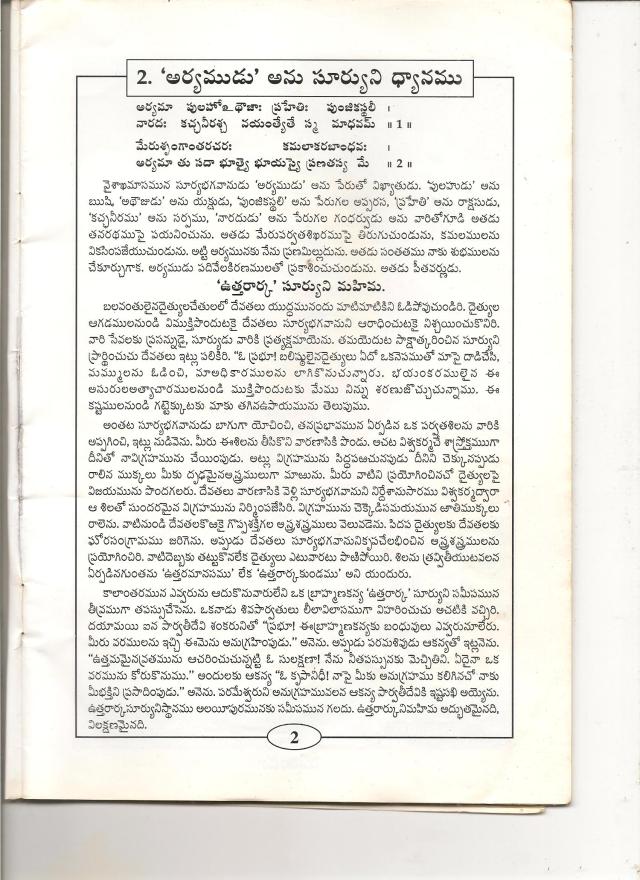 2. ‘అర్యముడు’ అను సూర్యుని ధ్యానము
అర్యమా పులహోఽథౌజాః ప్రహేతిః పుంజికస్థలీ ।
నారదః కచ్ఛనీరశ్చ నయంత్యేతే స్మ మాధవమ్ ॥ 1 ॥
మేరుశృంగాంతరచరః కమలాకరబాంధవః ।
అర్యమా తు సదా భూత్యై భూయస్యై ప్రణతస్య మే ॥ 2 ॥
వైశాఖమాసమున సూర్యభగవానుడు ‘అర్యముడు’ అను పేరుతో విఖ్యాతుడు. ‘పులహుడు’ అను
ఋషి, ‘అథౌజుడు’ అను యక్షుడు, ‘పుంజికస్థలి’ అను పేరుగల అప్సరస, ‘ప్రహేతి’ అను రాక్షసుడు,
‘కచ్ఛనీరము’ అను సర్పము, ‘నారదుడు’ అను పేరుగల గంధర్వుడు అను వారితోగూడి అతడు
తనరథముపై పయనించును. అతడు మేరుపర్వతశిఖరముపై తిరుగుచుండును, కమలములను
వికసింపజేయుచుండును. అట్టి అర్యమునకు నేను ప్రణమిల్లుదును. అతడు సంతతము నాకు శుభములను
చేకూర్చుగాక. అర్యముడు పదివేలకిరణములతో ప్రకాశించుచుండును. అతడు పీతవర్ణుడు.
‘ఉత్తరార్క’ సూర్యుని మహిమ.
బలవంతులైనదైత్యులచేతులలో దేవతలు యుద్ధమునందు మాటిమాటికిని ఓడిపోవుచుండిరి. దైత్యుల
ఆగడములనుండి విముక్తిపొందుటకై దేవతలు సూర్యభగవానుని ఆరాధించుటకై నిశ్చయించుకొనిరి.
వారి సేవలకు ప్రసన్నుడై, సూర్యుడు వారికి ప్రత్యక్షమాయెను. తమయెదుట సాక్షాత్కరించిన సూర్యుని
ప్రార్థించుచు దేవతలు ఇట్లు పలికిరి. “ఓ ప్రభూ! బలిష్ఠులైనదైత్యులు ఏదో ఒకనెపముతో మాపై దాడిచేసి,
మమ్ములను ఓడించి, మాఅధికారములను లాగికొనుచున్నారు. భయంకరములైన ఈ
అసురులఅత్యాచారములనుండి ముక్తిపొందుటకు మేము నిన్ను శరణుజొచ్చుచున్నాము. ఈ
కష్టములనుండి గట్టెక్కుటకు మాకు తగినఉపాయమును తెలుపుము.
అంతట సూర్యభగవానుడు బాగుగా యోచించి, తనప్రభావమున ఏర్పడిన ఒక పర్వతశిలను వారికి
అప్పగించి, ఇట్లు నుడివెను. మీరు ఈశిలను తీసికొని వారణాసికి పొండు. అచట విశ్వకర్మచే శాస్త్రోక్తముగా
దీనితో నావిగ్రహమును చేయింపుడు. అట్లు విగ్రహమును సిద్ధపఱచునపుడు దీనిని చెక్కునప్పుడు
రాలిన ముక్కలు మీకు దృఢమైనఅస్త్రములుగా మాఱును. మీరు వాటిని ప్రయోగించినచో దైత్యులపై
విజయమును పొందగలరు. దేవతలు వారణాసికి వెళ్లి సూర్యభగవానుని నిర్దేశానుసారము విశ్వకర్మద్వారా
ఆ శిలతో సుందరమైన విగ్రహమును నిర్మింపజేసిరి. విగ్రహమును చెక్కెడిసమయమున జాతిముక్కలు
రాలెను. వాటినుండి దేవతలకొఱకై గొప్పశక్తిగల అస్త్రశస్త్రములు వెలువడెను. పిదప దైత్యులకు దేవతలకు
ఘోరసంగ్రామము జరిగెను. అప్పుడు దేవతలు సూర్యభగవానునికృపచేలభించిన అస్త్రశస్త్రములను
ప్రయోగించిరి. వాటిదెబ్బకు తట్టుకొనలేక దైత్యులు ఎటువారటు పాఱిపోయిరి. శిలను త్రవ్వితీయుటవలన
ఏర్పడినగుంతను ‘ఉత్తరమానసము’ లేక ‘ఉత్తరార్కకుండము’ అని యందురు.
కాలాంతరమున ఎవ్వరును ఆదుకొనువారులేని ఒక బ్రాహ్మణకన్య ‘ఉత్తరార్క’ సూర్యుని సమీపమున
తీవ్రముగా తపస్సుచేసెను. ఒకనాడు శివపార్వతులు లీలావిలాసముగా విహరించుచు అచటికి వచ్చిరి.
దయామయి ఐన పార్వతీదేవి శంకరునితో “ప్రభూ! ఈబ్రాహ్మణకన్యకు బంధువులు ఎవ్వరునూలేరు.
మీరు వరములను ఇచ్చి ఈమెను అనుగ్రహింపుడు.” అనెను. అప్పుడు పరమశివుడు ఆకన్యతో ఇట్లనెను.
“ఉత్తమమైనవ్రతమును ఆచరించుచున్నట్టి ఓ సులక్షణా! నేను నీతపస్సునకు మెచ్చితిని. ఏదైనా ఒక
వరమును కోరుకొనుము.” అందులకు ఆకన్య “ఓ కృపానిధీ! నాపై మీకు అనుగ్రహము కలిగినచో నాకు
మీభక్తిని ప్రసాదింపుడు.” అనెను. పరమేశ్వరుని అనుగ్రహమువలన ఆకన్య పార్వతీదేవికి ఇష్టసఖి అయ్యెను.
ఉత్తరార్కసూర్యునిస్థానము అలయీపురమునకు సమీపమున గలదు. ఉత్తరార్కునిమహిమ అద్భుతమైనది,
విలక్షణమైనది.
2